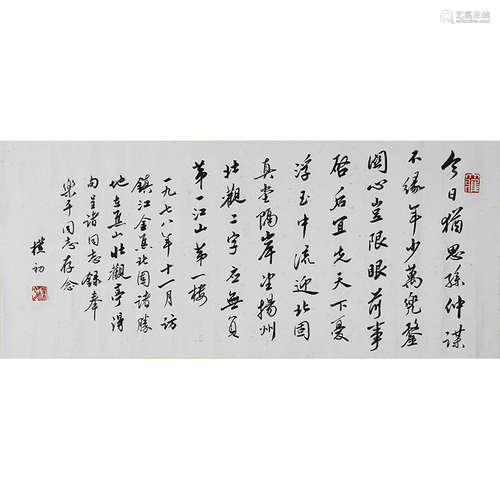 今日猶思孫仲謀
不緣年少萬兜鍪
關心豈限眼前事
啓后宜先天下憂
浮玉中流迎北固
真堂隔岸望揚州
壯觀二字應無負
第一江山第一樓
一九七八年十一月訪
鎮江金焦北固諸勝
地在焦山壯觀亭得
句呈諸同志錄奉
樂平同志存念
樸初